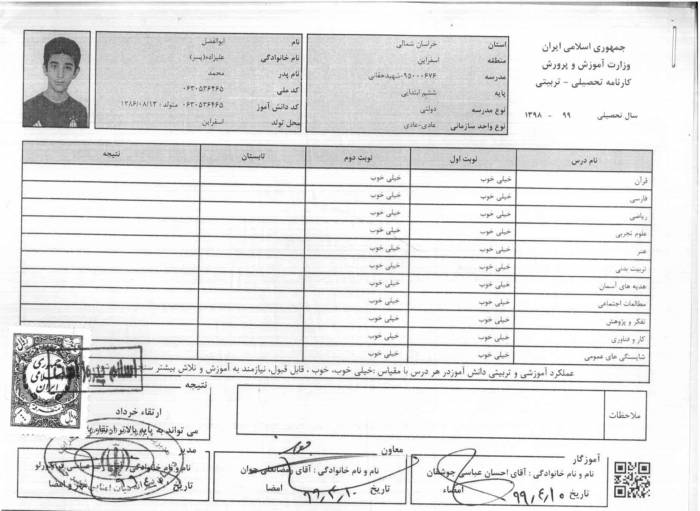 جمهوری اسلامی ایران
وزارت آموزش و پرورش
کارنامه تحصیلی - تربیتی
سال تحصیلی ۹۹ - ۱۳۹۸
استان خراسان شمالی
منطقه اسفراین
مدرسه ۹۵۰۰۰۶۷۶-شهیدحقانی
پایه ششم ابتدایی
نوع مدرسه دولتی
نوع واحد سازمانی عادی-عادی
نام ابوالفضل
نام خانوادگی علیزاده(پسر)
نام پدر محمد
کد ملی ۰۶۳۰۵۳۶۴۶۵
کد دانش آموز ۰۶۳۰۵۳۶۴۶۵ متولد : ۱۳۸۶/۰۸/۱۳
محل تولد اسفراین
نام درس نوبت اول نوبت دوم تابستان نتیجه
قرآن خیلی خوب خیلی خوب
فارسی خیلی خوب خیلی خوب
ریاضی خیلی خوب خیلی خوب
علوم تجربی خیلی خوب خیلی خوب
هنر خیلی خوب خیلی خوب
تربیت بدنی خیلی خوب خیلی خوب
هدیه های آسمان خیلی خوب خیلی خوب
مطالعات اجتماعی خیلی خوب خیلی خوب
تفکر و پژوهش خیلی خوب خیلی خوب
کار و فناوری خیلی خوب خیلی خوب
شایستگی های عمومی خیلی خوب خیلی خوب
عملکرد آموزشی و تربیتی دانش آموزدر هر درس با مقیاس :خیلی خوب، خوب ، قابل قبول، نیازمند به آموزش و تلاش بیشتر
ملاحظات
نتیجه
ارتقاء خرداد
می تواند به پایه بالاتر ارتقاء
آموزگار
نام و نام خانوادگی : آقای احسان عباسی جوشقان
تاریخ ۹۹,۴,۱۰ امضاء
معاون
نام و نام خانوادگی : آقای رمضانعلی جوان
تاریخ امضا
مدیر
نام و نام خانوادگی :
تاریخ مهر و امضا
جمهوری
اسلامی
ایران